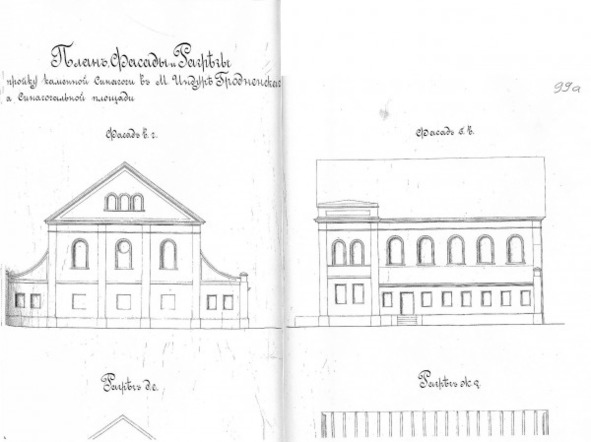 Планъ, Фасады и Разрѣзы
пройку каменной Синагоги въ М. Индурѣ Гродненской
а Синагогальной площади
99а
Фасадъ в. г.
Фасадъ б. в.
Разрѣзъ д. е.
Разрѣзъ ж